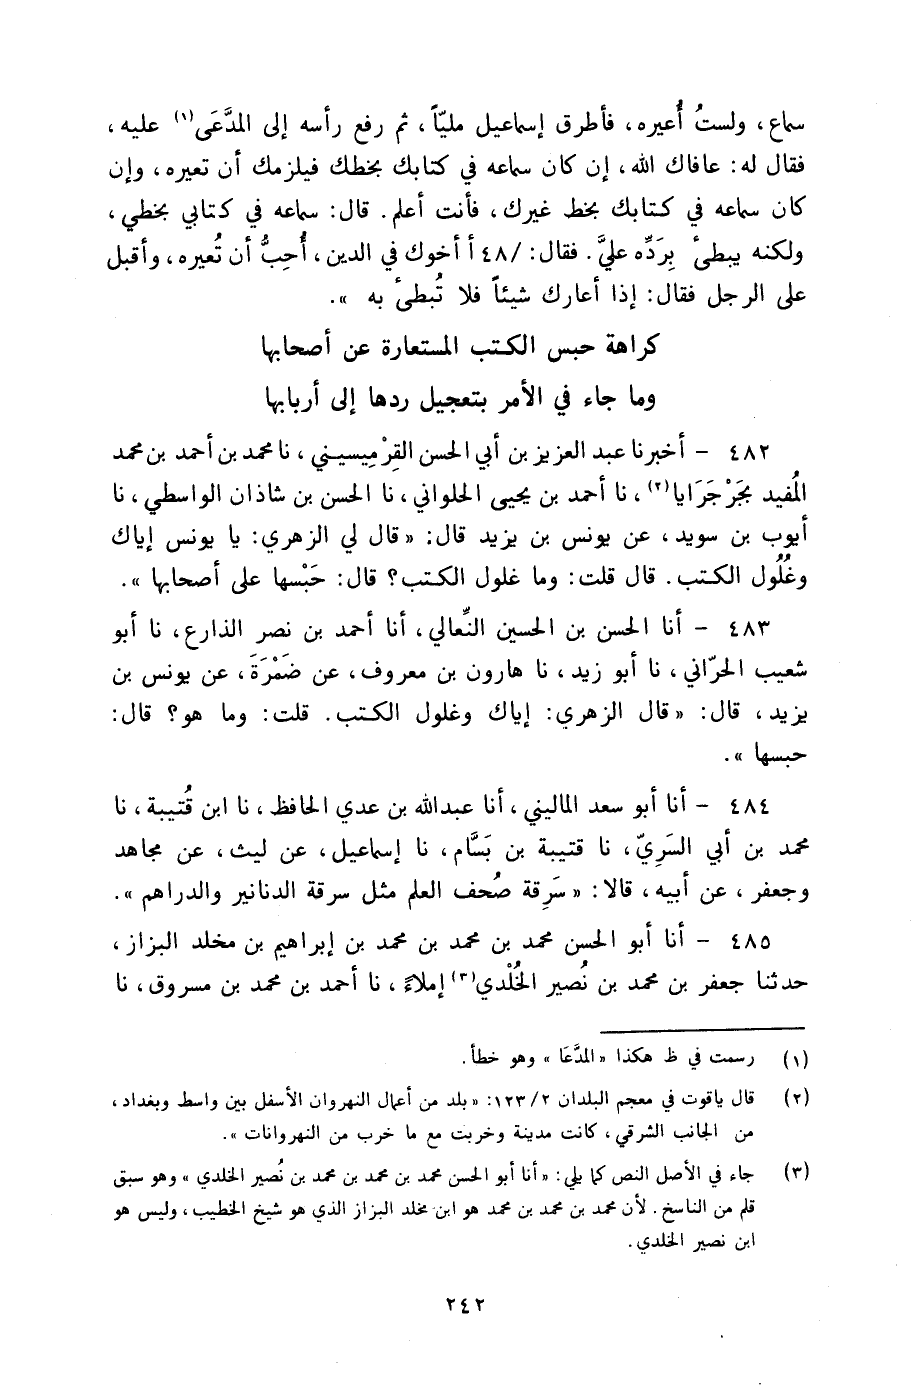 سماع، ولستُ أُعيره، فأطرق إسماعيل مليّاً، ثم رفع رأسه إلى المدَّعَى(١) عليه،
فقال له: عافاك الله، إن كان سماعه في كتابك بخطك فيلزمك أن تعيره، وإن
كان سماعه في كتابك بخط غيرك، فأنت أعلم. قال: سماعه في كتابي بخطي،
ولكنه يبطئ بِرَدِّه عليَّ. فقال: /٤٨ أ أخوك في الدين، أُحِبُّ أن تُعيره، وأقبل
على الرجل فقال: إذا أعارك شيئاً فلا تُبطئ به ».
كراهة حبس الكتب المستعارة عن أصحابها
وما جاء في الأمر بتعجيل ردها إلى أربابها
٤٨٢ - أخبرنا عبد العزيز بن أبي الحسن القِرْمِيسيني، نا محمد بن أحمد بن محمد
المُفيد بجَرْجَرَايا(٢)، نا أحمد بن يحيى الحلواني، نا الحسن بن شاذان الواسطي، نا
أيوب بن سويد، عن يونس بن يزيد قال: « قال لي الزهري: يا يونس إياك
وغُلُول الكتب. قال قلت: وما غلول الكتب؟ قال: حَبْسها على أصحابها ».
٤٨٣ - أنا الحسن بن الحسين النِّعالي، أنا أحمد بن نصر الذارع، نا أبو
شعيب الحرّاني، نا أبو زيد، نا هارون بن معروف، عن ضَمْرَةَ، عن يونس بن
يزيد، قال: « قال الزهري: إياك وغلول الكتب. قلت: وما هو؟ قال:
حبسها ».
٤٨٤ - أنا أبو سعد الماليني، أنا عبدالله بن عدي الحافظ، نا ابن قُتيبة، نا
محمد بن أبي السَرِيّ، نا قتيبة بن بَسَّام، نا إسماعيل، عن ليث، عن مجاهد
وجعفر، عن أبيه، قالا: « سَرِقة صُحف العلم مثل سرقة الدنانير والدراهم ».
٤٨٥ - أنا أبو الحسن محمد بن محمد بن محمد بن إبراهيم بن مخلد البزاز،
حدثنا جعفر بن محمد بن نُصير الخُلْدي(٣) إملاءً، نا أحمد بن محمد بن مسروق، نا
(١) رسمت في ظ هكذا «المدَّعَا » وهو خطأ.
(٢) قال ياقوت في معجم البلدان ١٢٣/٢: « بلد من أعمال النهروان الأسفل بين واسط وبغداد،
من الجانب الشرقي، كانت مدينة وخربت مع ما خرب من النهروانات ».
(٣) جاء في الأصل النص كما يلي: « أنا أبو الحسن محمد بن محمد بن محمد بن نُصير الخلدي » وهو سبق
قلم من الناسخ. لأن محمد بن محمد بن محمد هو ابن مخلد البزاز الذي هو شيخ الخطيب، وليس هو
ابن نصير الخلدي.
٢٤٢